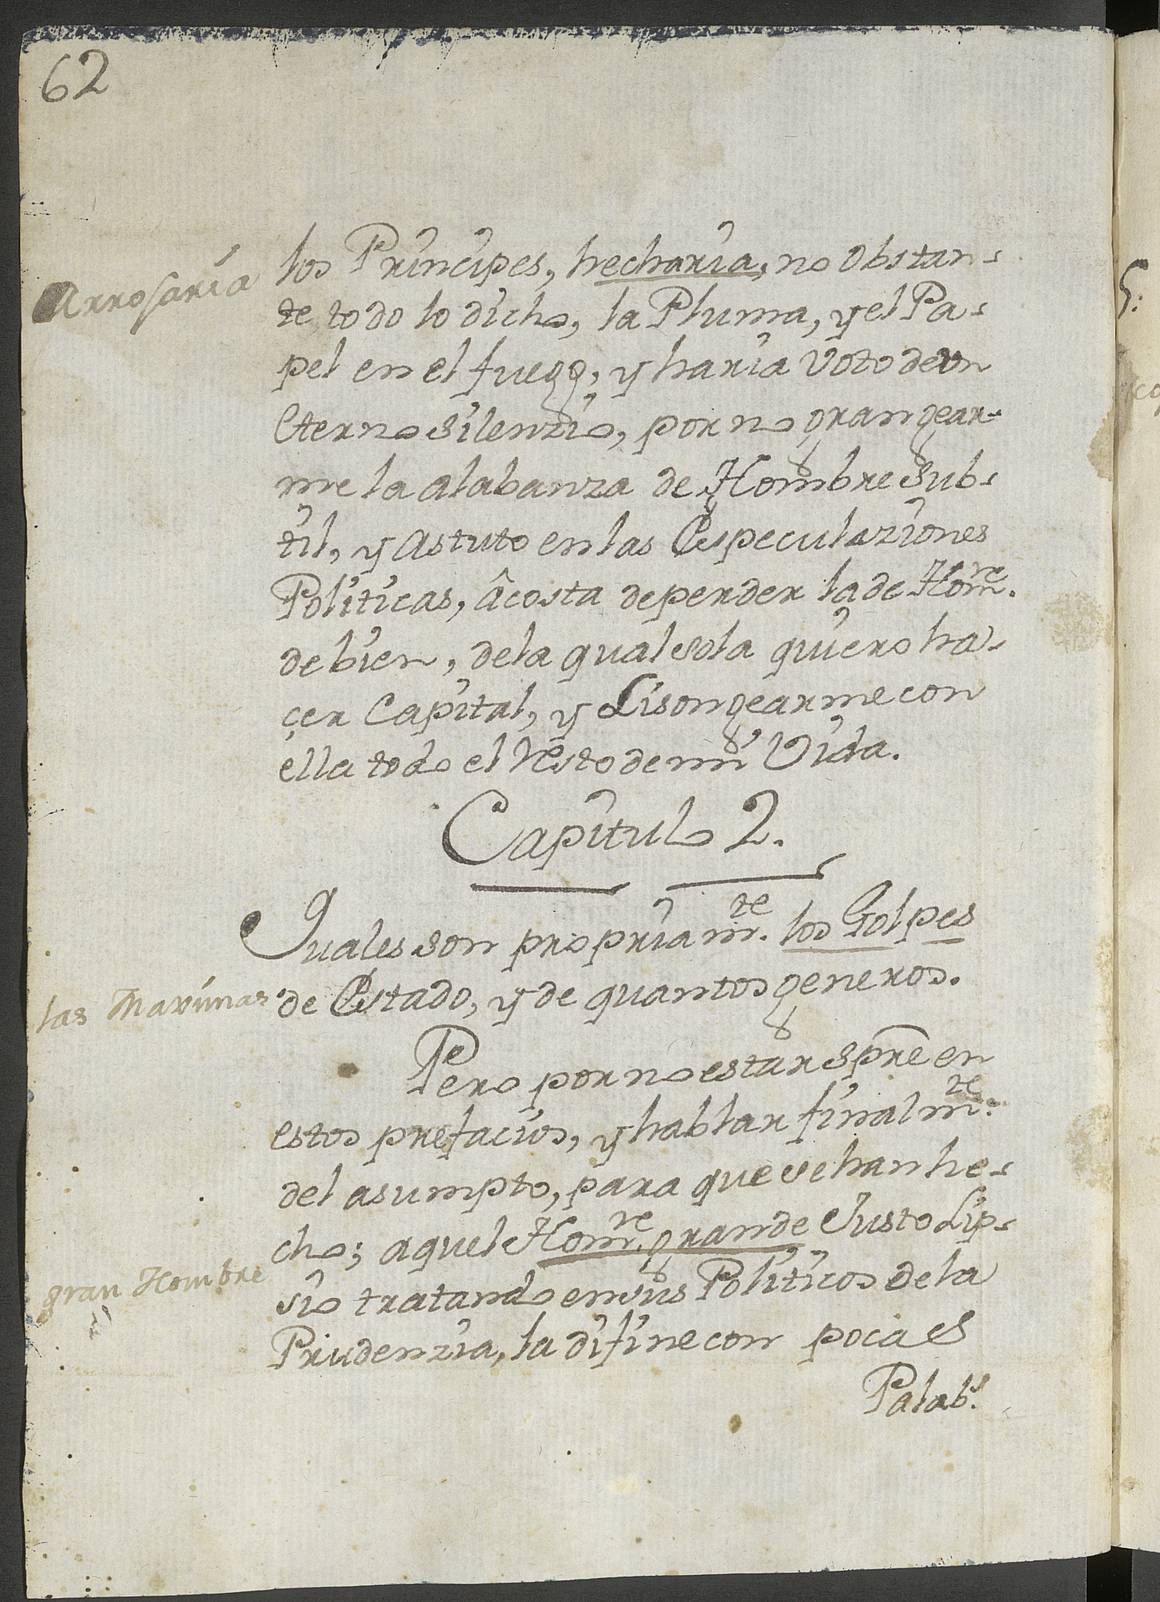 62
los Principes, hecharia, no obstan-
Arrojaria
te todo lo dicho, la Pluma, y el Pa-
pel en el fuego, y haria Voto de un
Eterno Silenzio, por no grangear-
me la alabanza de Hombre Sub-
til, y astuto en las Especulaziones
Politicas, â costa de perder la de Homre.
de bien, de la qual sola quiero ha-
çer Capital, y Lisongearme con
ella todo el resto de mi Vida.
Capitulo 2.
Quales son propriamte. los Golpes
las Maximas
de Estado, y de quantos generos.
Pero por no estar spre en
estos prefacios, y hablar finalmte.
del asumpto, para que se han he-
cho; aquel Homre. grande Justo Lip-
gran Hombre
sio tratando en sus Politicos de la
Prudenzia, la difine con pocas
Palabs.